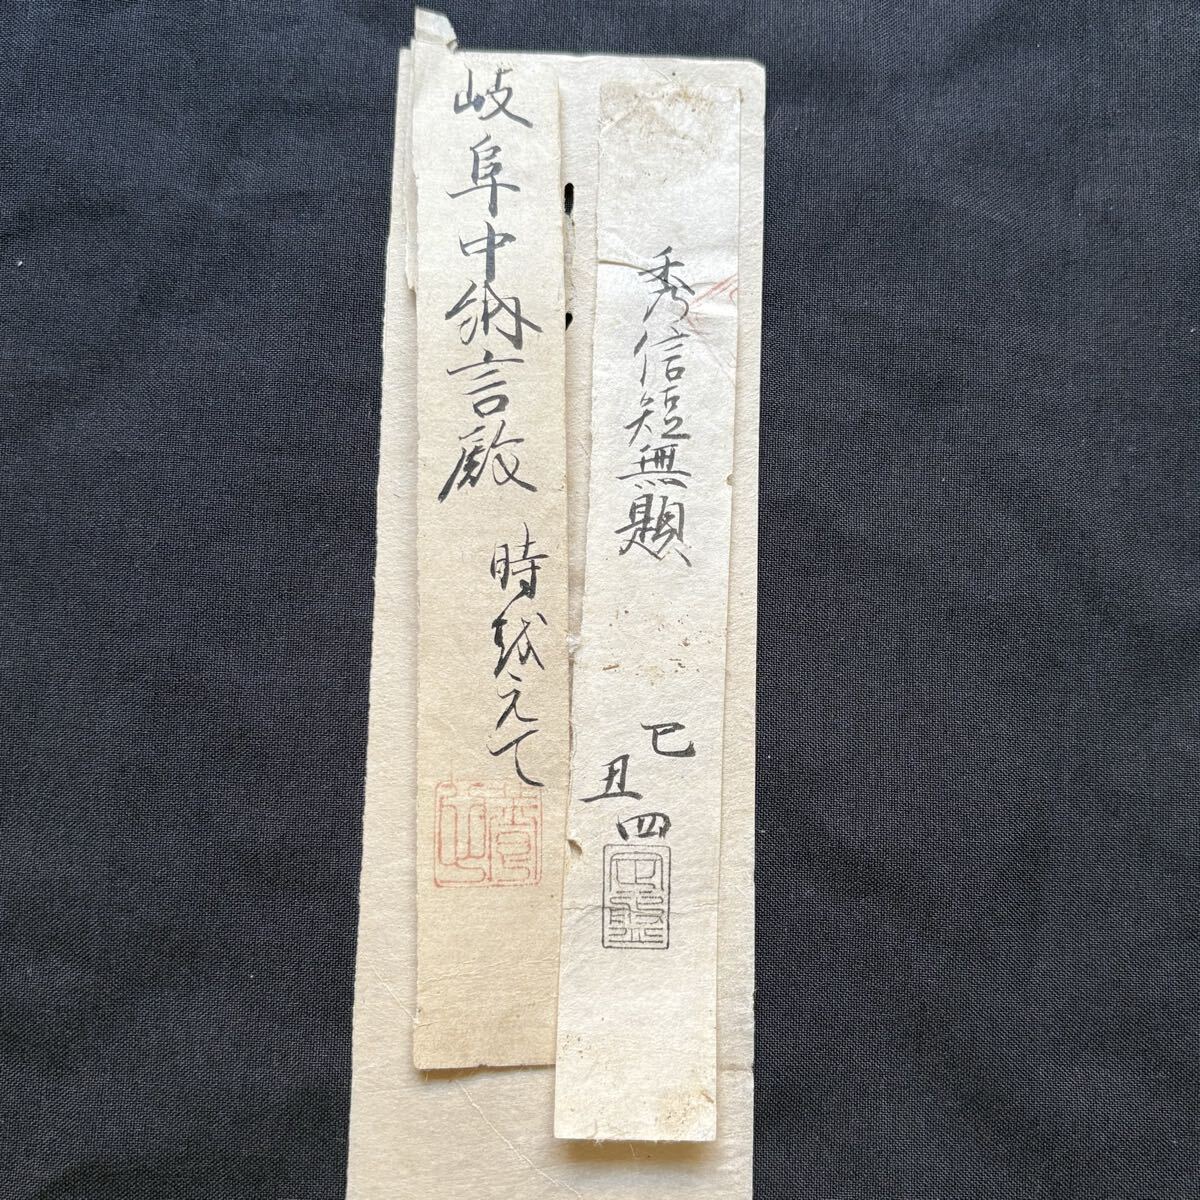 秀信短無題
己丑四
岐阜中納言殿
時越えて